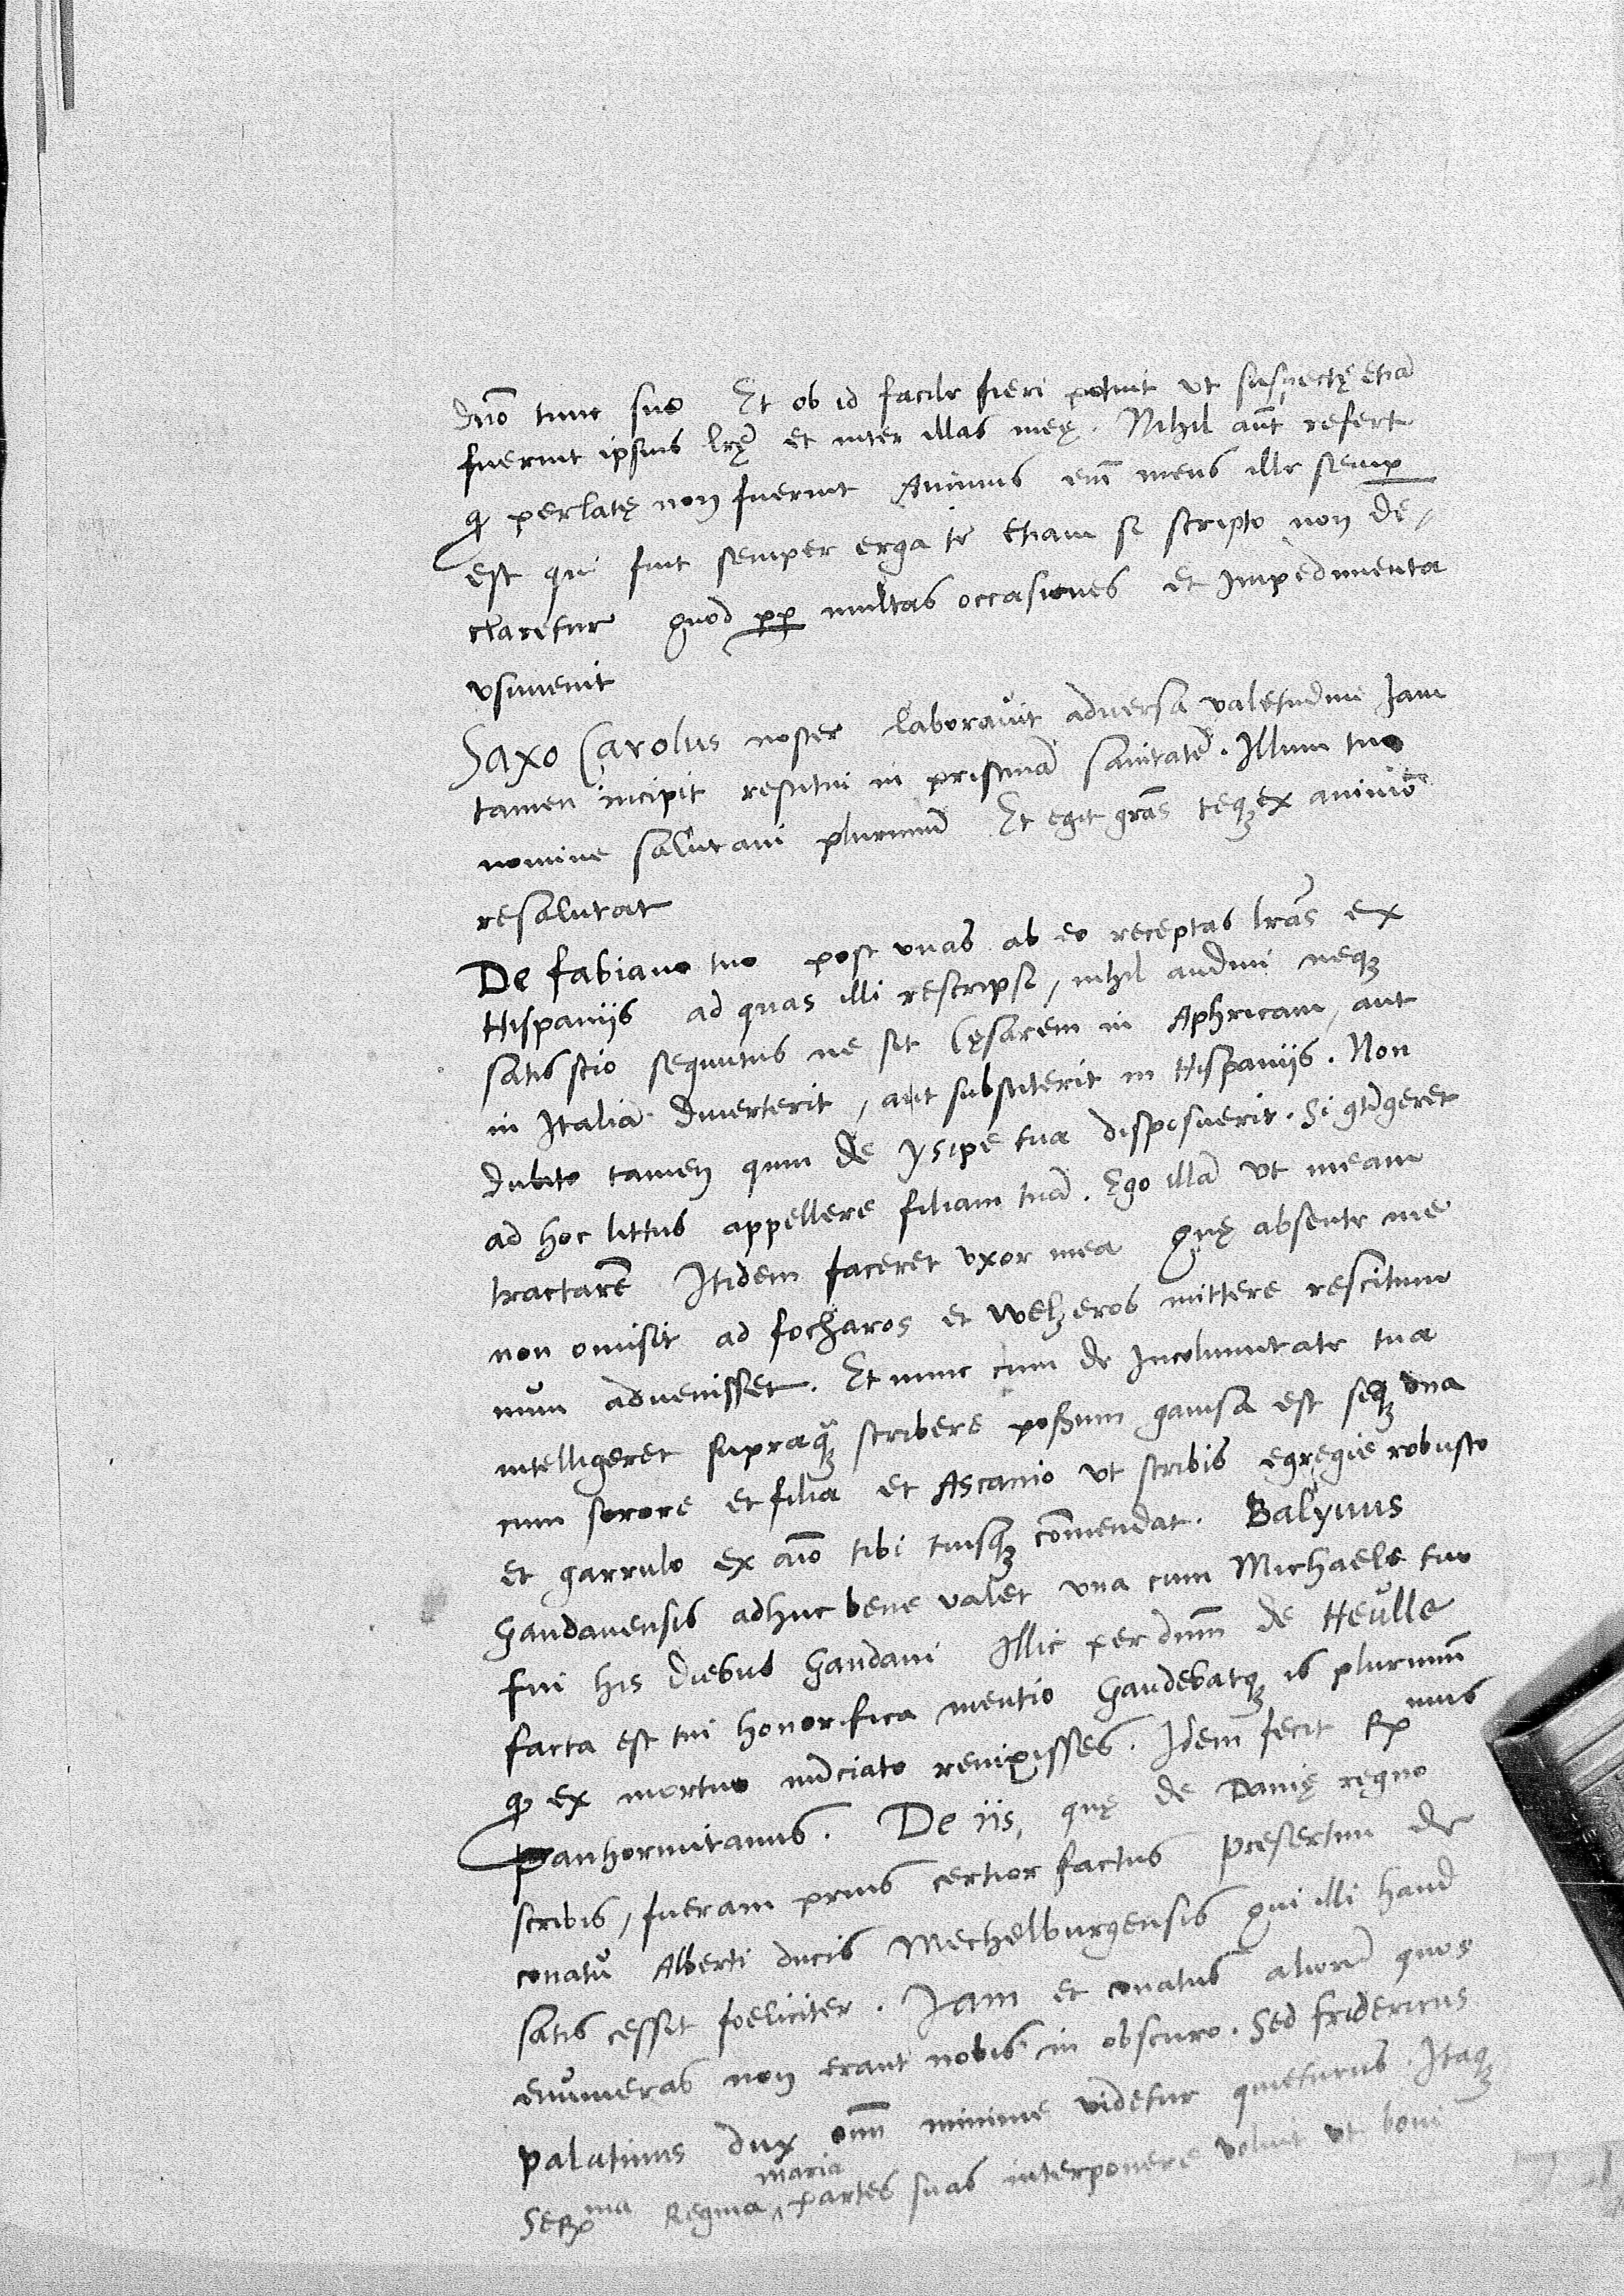 dno tunc suo Et ob id facile fieri potuit ut suspectę etiã
fuerint ipsius lrę et inter illas meę. Nihil aut refert
q perlatę non fuerint Animus em meus ille semp
est qui fuit semper erga te etiam si scripto non de,
claretur quod pp multas occasiones et Impedimenta
usuvenit
Saxo Carolus noster laboravit adversa valetudine Jam
tamen incipit restitui in pristinã sanitatẽ. Illum tuo
nomine salutavi plurimũ Et egit grãs teqȝ ex animo
resalutat
De fabiano tuo post unas ab eo receptas lrãs ex
Hispaniis ad quas illi rescripsi, nihil audivi neqȝ
satis scio sequutus ne sit Cęsarem in Aphricam, aut
in Italiã diverterit, aut substiterit in Hispaniis. Non
dubito tamen quin de ysipe tua disposuerit. Si gtĩgeret
ad hoc littus appellere filiam tuã. Ego illã ut meam
tractarẽ Itidem faceret uxor mea quę absente me
non omisit ad focharos et welzeros mittere rescitum
num advenisset. Et nunc cum de Incolumitate tua
intelligeret supraqȝ scribere possum gavisa est seqȝ una
cum sorore et filia et Ascanio ut scribis egregie robusto
et garrulo ex aĩo tibi tuisqȝ cõmendat. Balynus
Gandavensis adhuc bene valet una cum Michaele tuo
fui his diebus Gandavi Illic per dnm de Heulle
facta est tui honorifica mentio Gaudebatqȝ is plurimũ
q ex mortuo nũciato revixisses. Idem fecit Rmus
panhormitanus. De iis, quę de Danię regno
scribis, fueram prius certior factus presertim de
conatu Alberti ducis Mechelburgensis qui illi haud
satis cessit foeliciter. Jam et conatus aliorũ quos
enumeras non erant nobis in obscuro. Sed fridericus
palatinus dux omĩ minime videtur quieturus. Itaqȝ
Serma Regina maria partes suas interponere voluit ut boni